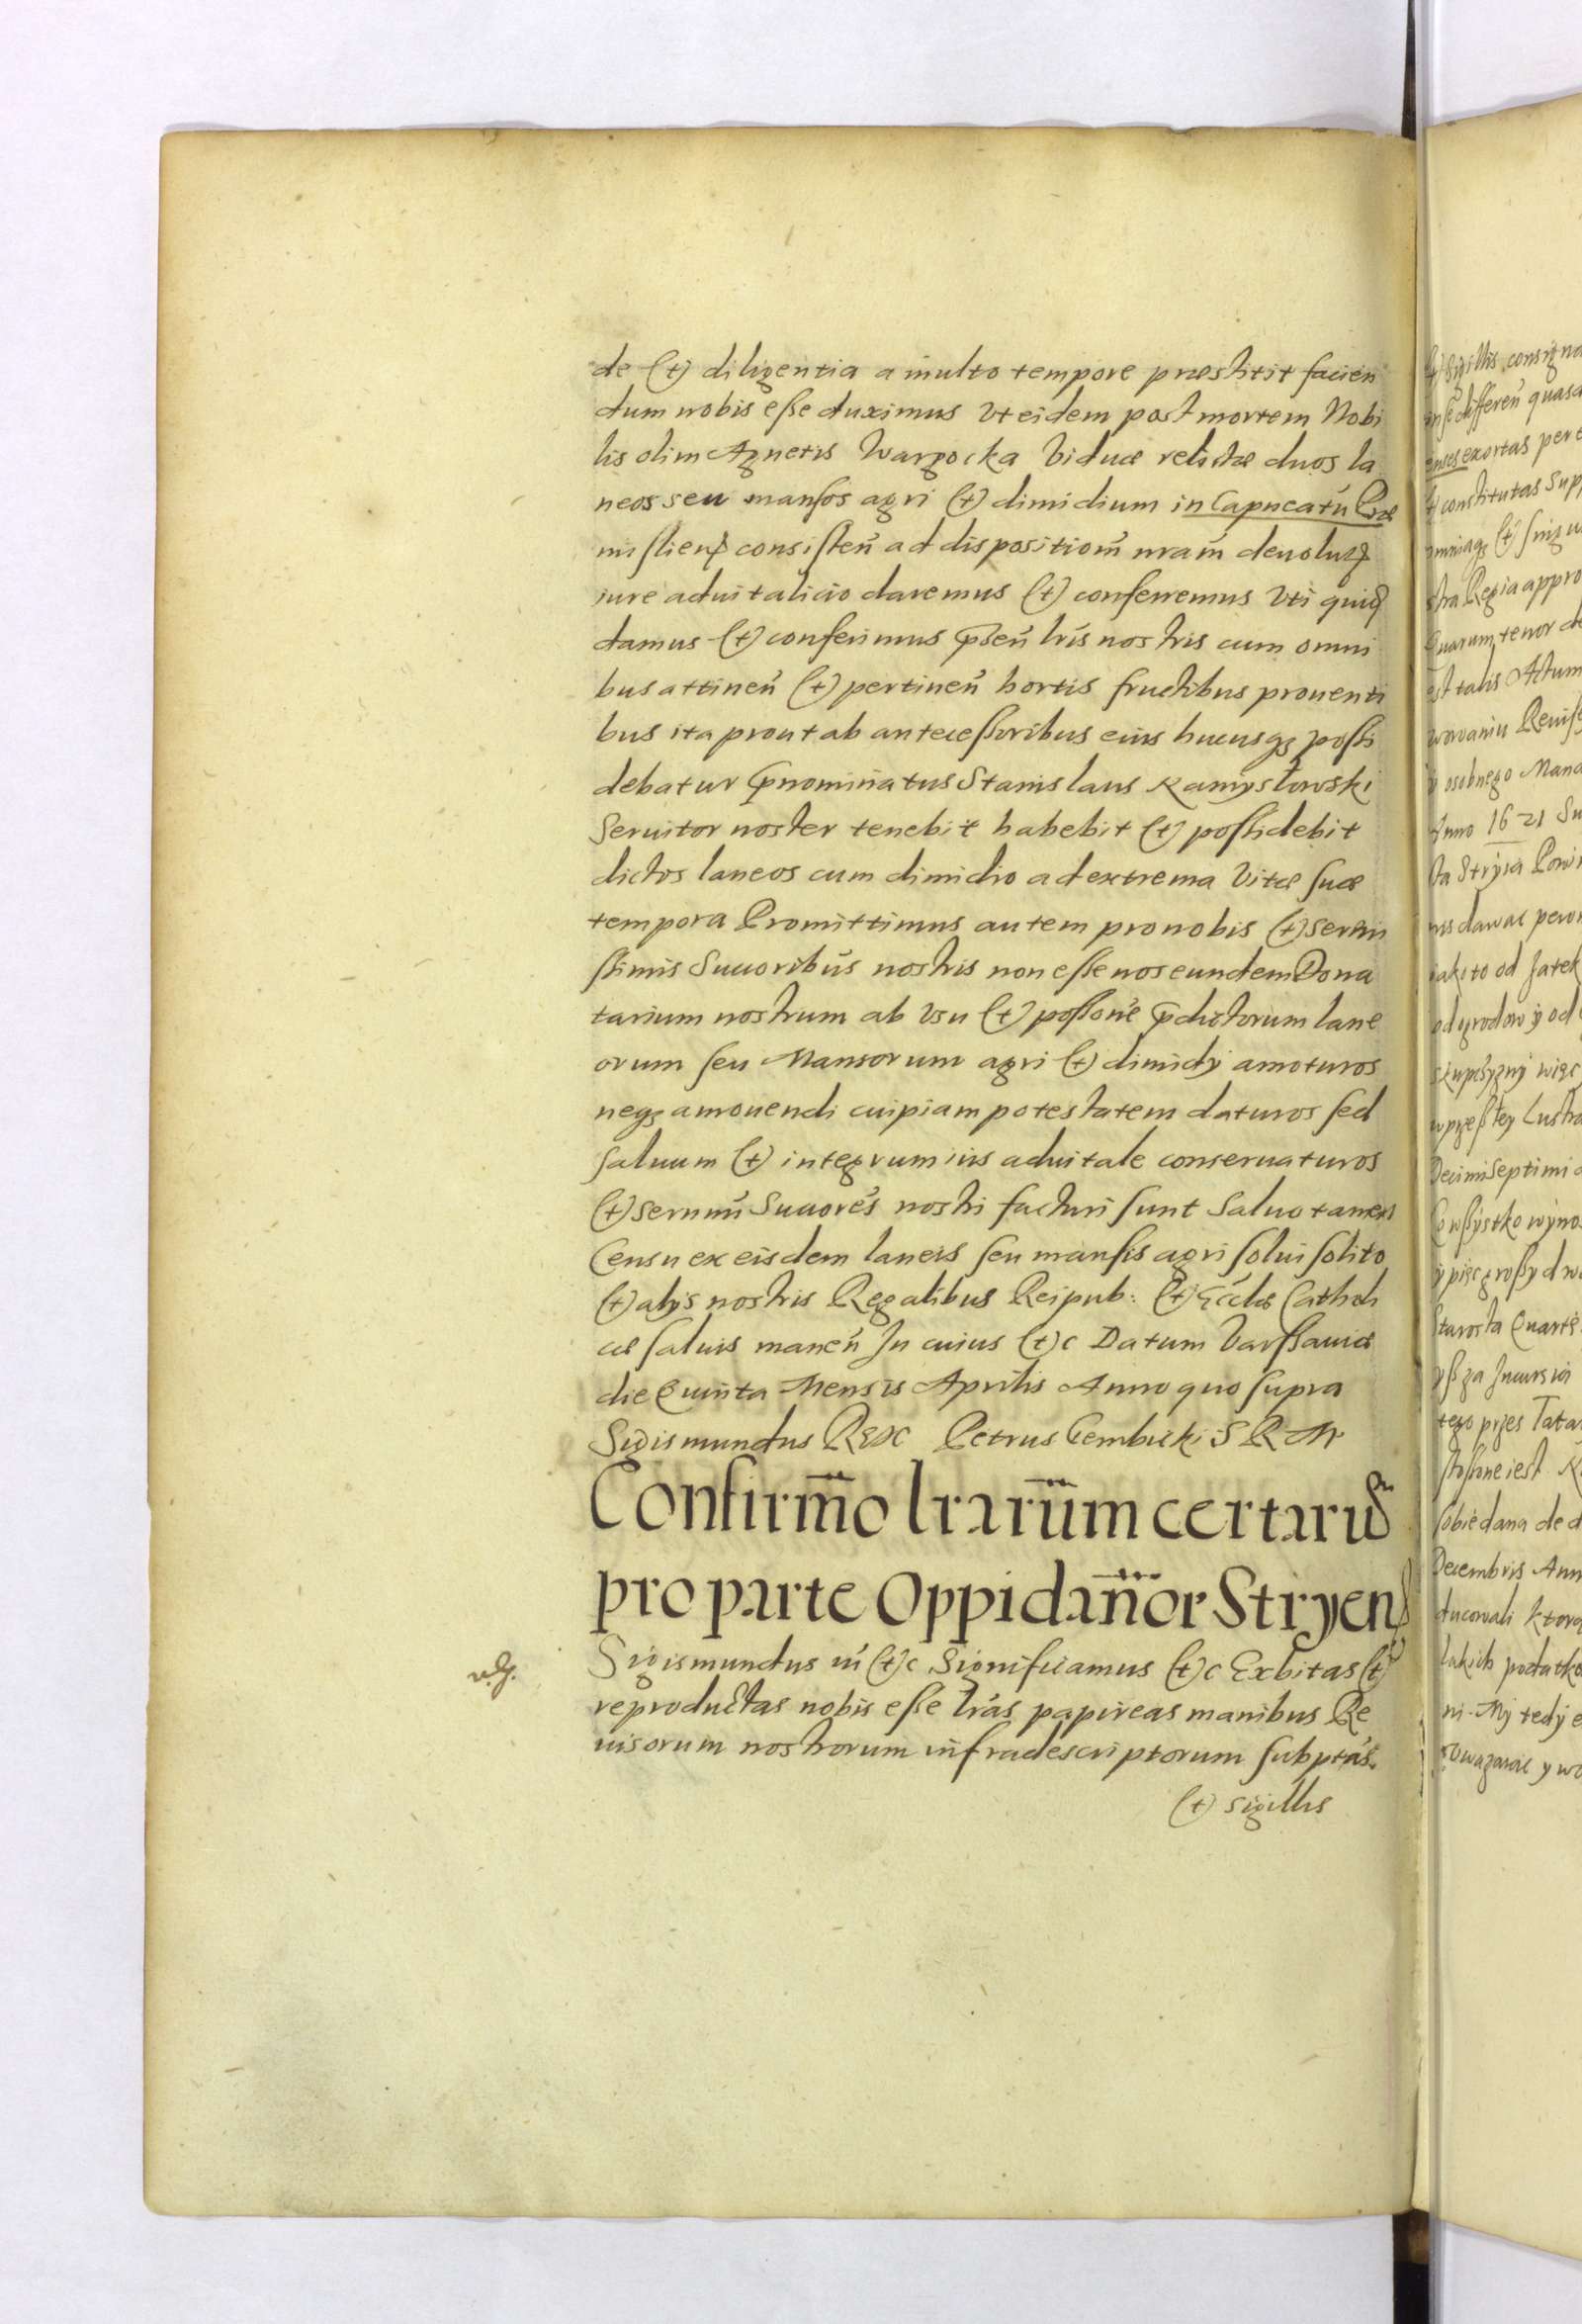 de (et) diligentia a multo tempore præstitit facien
dum nobis eſse duximus Vt eidem post mortem Nobi
lis olim Agnetis Wargocka Viduæ relictæ duos la
neos seu manſos agri (et) dimidium in Capucatū Præ
miſlien̄ consiſteñ ad dispositiom̃ nram̃ deuolutꝫ
iure aduitalicio daremus (et) conferremus Vti quidꝫ
damus (et) conferimus p̃señ lris nostris cum omni
bus attineñ (et) pertineñ hortis fructibus prouenti
bus ita prout ab anteceſſoribus eius hucusqꝫ poſſi
debatur p̃nominatus Stanislaus Kamysłowski
Seruitor noster tenebit habebit (et) poſſidebit
dictos laneos cum dimidio ad extrema Vitæ ſuæ
tempora Promittimus autem pro nobis (et) Sereni
ſſimis Succoribūs nostris non eſſe nos eundem Dona
tarium nostrum ab Vsu (et) poſſone p̃dictorum lane
orum ſeu Mansorum agri (et) dimidÿ amoturos
neqꝫ amouendi cuipiam potestatem daturos ſed
ſaluum (et) integrum iūs aduitale conseruaturos
(et) Sernmi Succores nostri facturi ſunt Saluo tamen
Censu ex eisdem laneis ſeu manſis agri ſolui ſolito
(et) alÿs nostris Regalibus Reipub: (et) Ecclæ Catholi
cæ ſaluis maneñ In cuius (et)c Datum Varſſauiæ
die Quinta Mensis Aprilis Anno quo ſupra
Sigismundus Rex Petrus Gembicki S R M
Confirm̃o lrarum̃ certarũ
pro parte Oppidañor Stryen̄
v.g.
Sigismundus iii (et)c Significamus (et)c Exhitas (et)
reproductas nobis eſſe lrás papireas manibus Re
uisorum nostrorum infradescriptorum ſubptás
(et) sigillis
(et) Sigillis consigna
differeñ quasd
enses exortas per c
(et) constitutas Sup
(et) ſing u
stra Regia appro
Quarum tenor de
est talis Actum
wowaniu Reuiſ
y osobnego Mand
Anno 1621 Su
sta Stryia Powi
dawac pewn
iako to od Jatek
od grodow y od
więc
Lustra
Decimi Septimi a
Co wſſystko wyno
y pięc groſſy dw
Starosta Quarte
Incursia
tego przes Tata
sobie dana de d
Decembris Ann
ducowali ktora
lakich podatko
ni. My tedy e
y wo